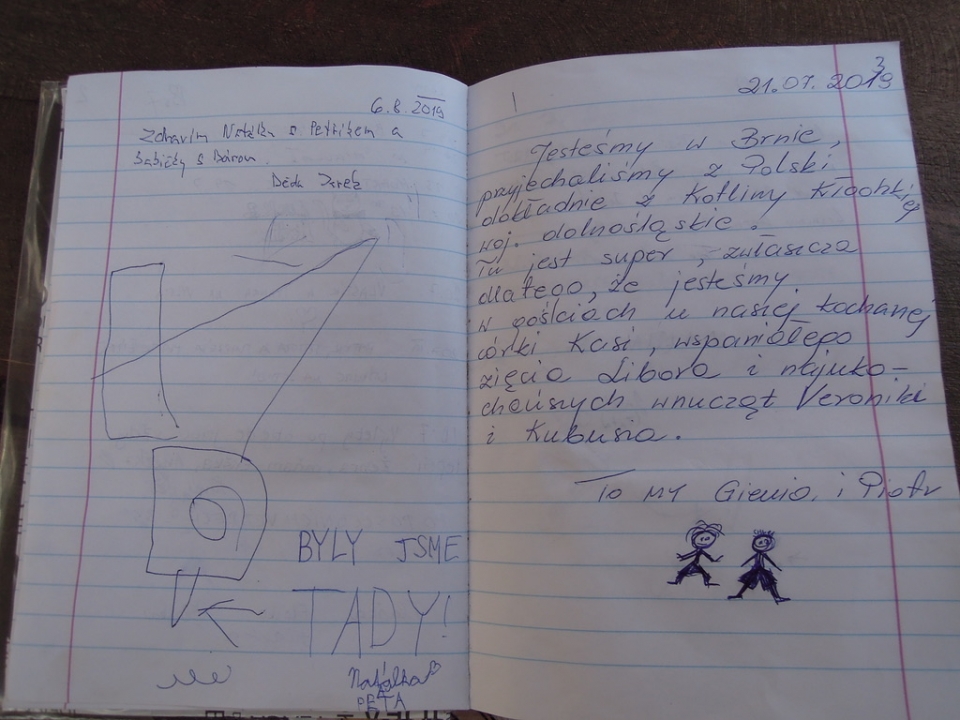 6.8. 2019
Zdravím Natálku s Petříkem a
babičku s
Děda
BYLY JSME
TADY!
Natálka
PÉTA
3
21.07. 2019
Jesteśmy w Brnie,
przyjechaliśmy z Polski
dokładnie z Kotliny Kłodzkiej
woj. dolnośląskie.
Tu jest super, zwłaszcza
dlatego, że jesteśmy
w gościach u naszej kochanej
córki Kasi, wspaniałego
zięcia Libora i najuko-
chańszych wnucząt Veroniki
i Kubusia.
To MY Gienia i Piotr